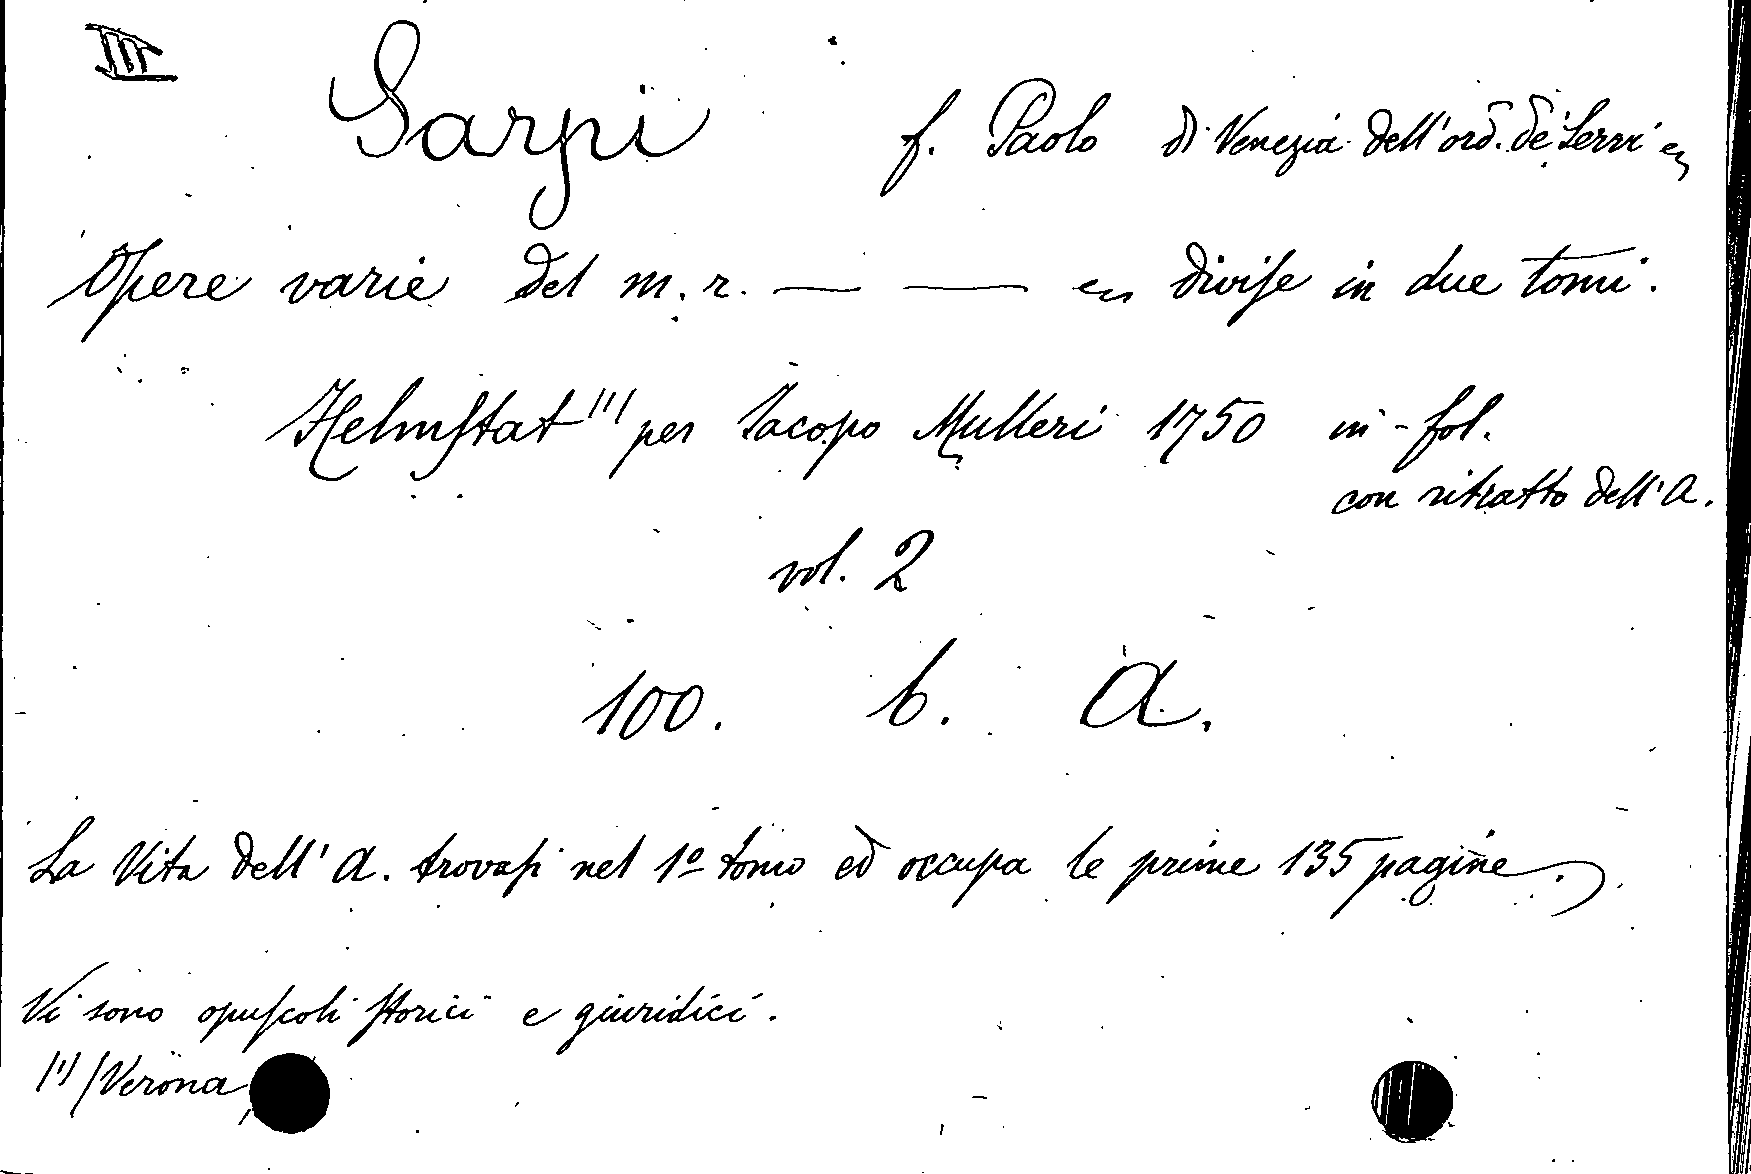 III
Sarpi f. Paolo di Venezia dell'ord. de' Servi
Opere varie del m. r. — — divise in due tomi.
Helmstat (1) per Jacopo Mulleri 1750 in-fol.
con ritratto dell'A.
vol. 2
100. b. A.
La Vita dell'A. trovasi nel 1º tomo ed occupa le prime 135 pagine.
Vi sono opuscoli storici e giuridici.
(1) (Verona)